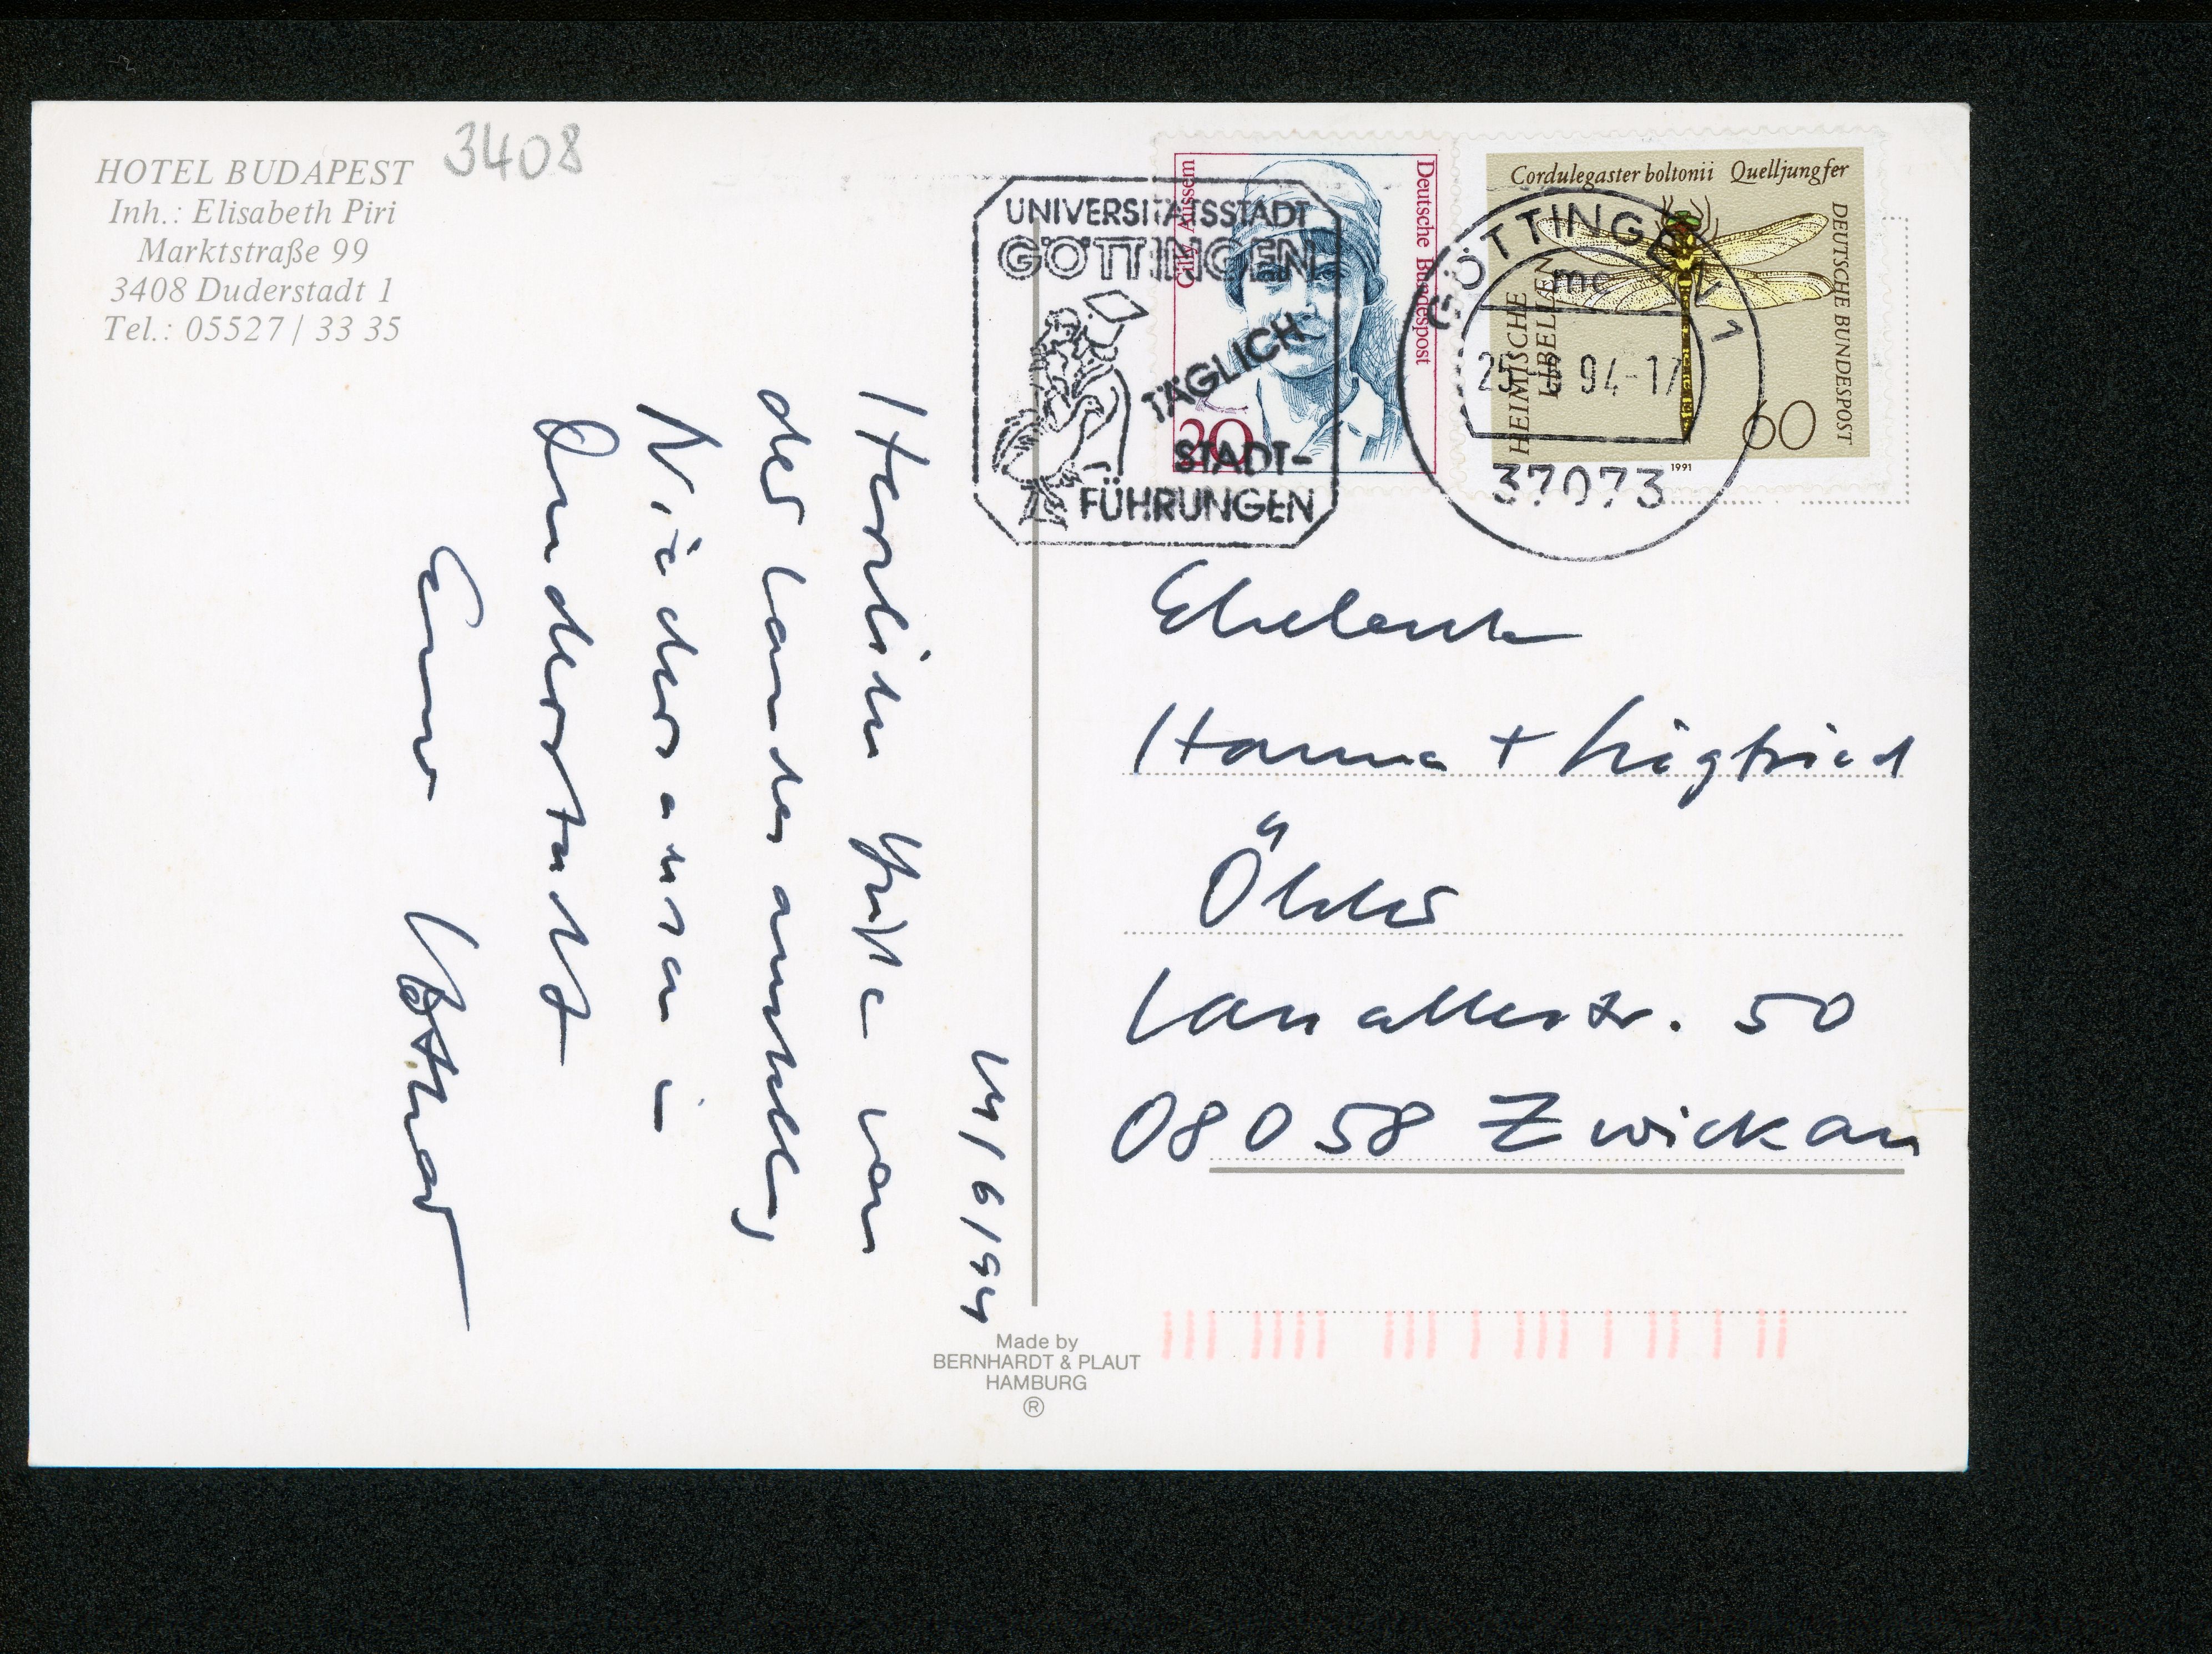 HOTEL BUDAPEST
Inh.: Elisabeth Piri
Marktstraße 99
3408 Duderstadt 1
Tel.: 05527 / 33 35
3408
UNIVERSITÄTSSTADT
GÖTTINGEN
TÄGLICH
STADT-
FÜHRUNGEN
Cilly Aussem
Deutsche Bundespost
20
Cordulegaster boltonii Quelljungfer
HEIMISCHE
LIBELLEN
DEUTSCHE BUNDESPOST
60
1991
GÖTTINGEN 1
mc
94-17
37073
24/6/94
Herzliche Grüße von
der Landesausstellg
Niedersachsen i
Duderstadt
Euer Lothar
Eheleute
Hanna + Siegfried
08058 Zwickau
Made by
BERNHARDT & PLAUT
HAMBURG
®